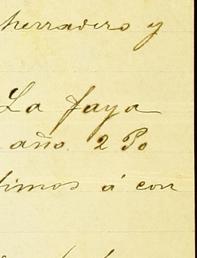 herradero y
La faya
año. 2 Po
timos á con